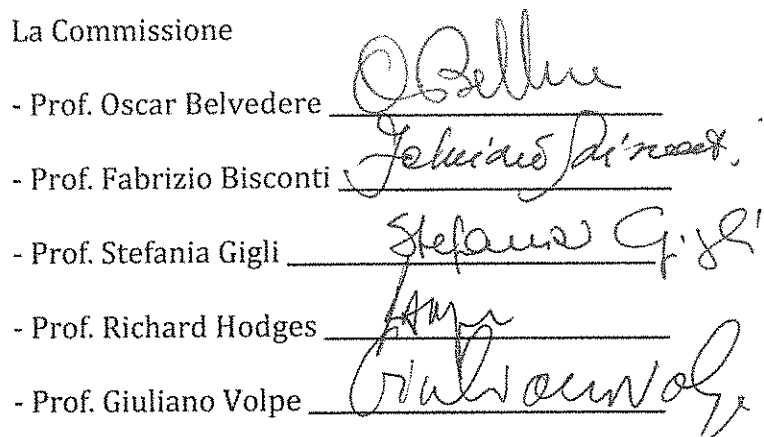 La Commissione
- Prof. Oscar Belvedere
- Prof. Fabrizio Bisconti
- Prof. Stefania Gigli Stefania Gigli
- Prof. Richard Hodges
- Prof. Giuliano Volpe Giuliano Volpe